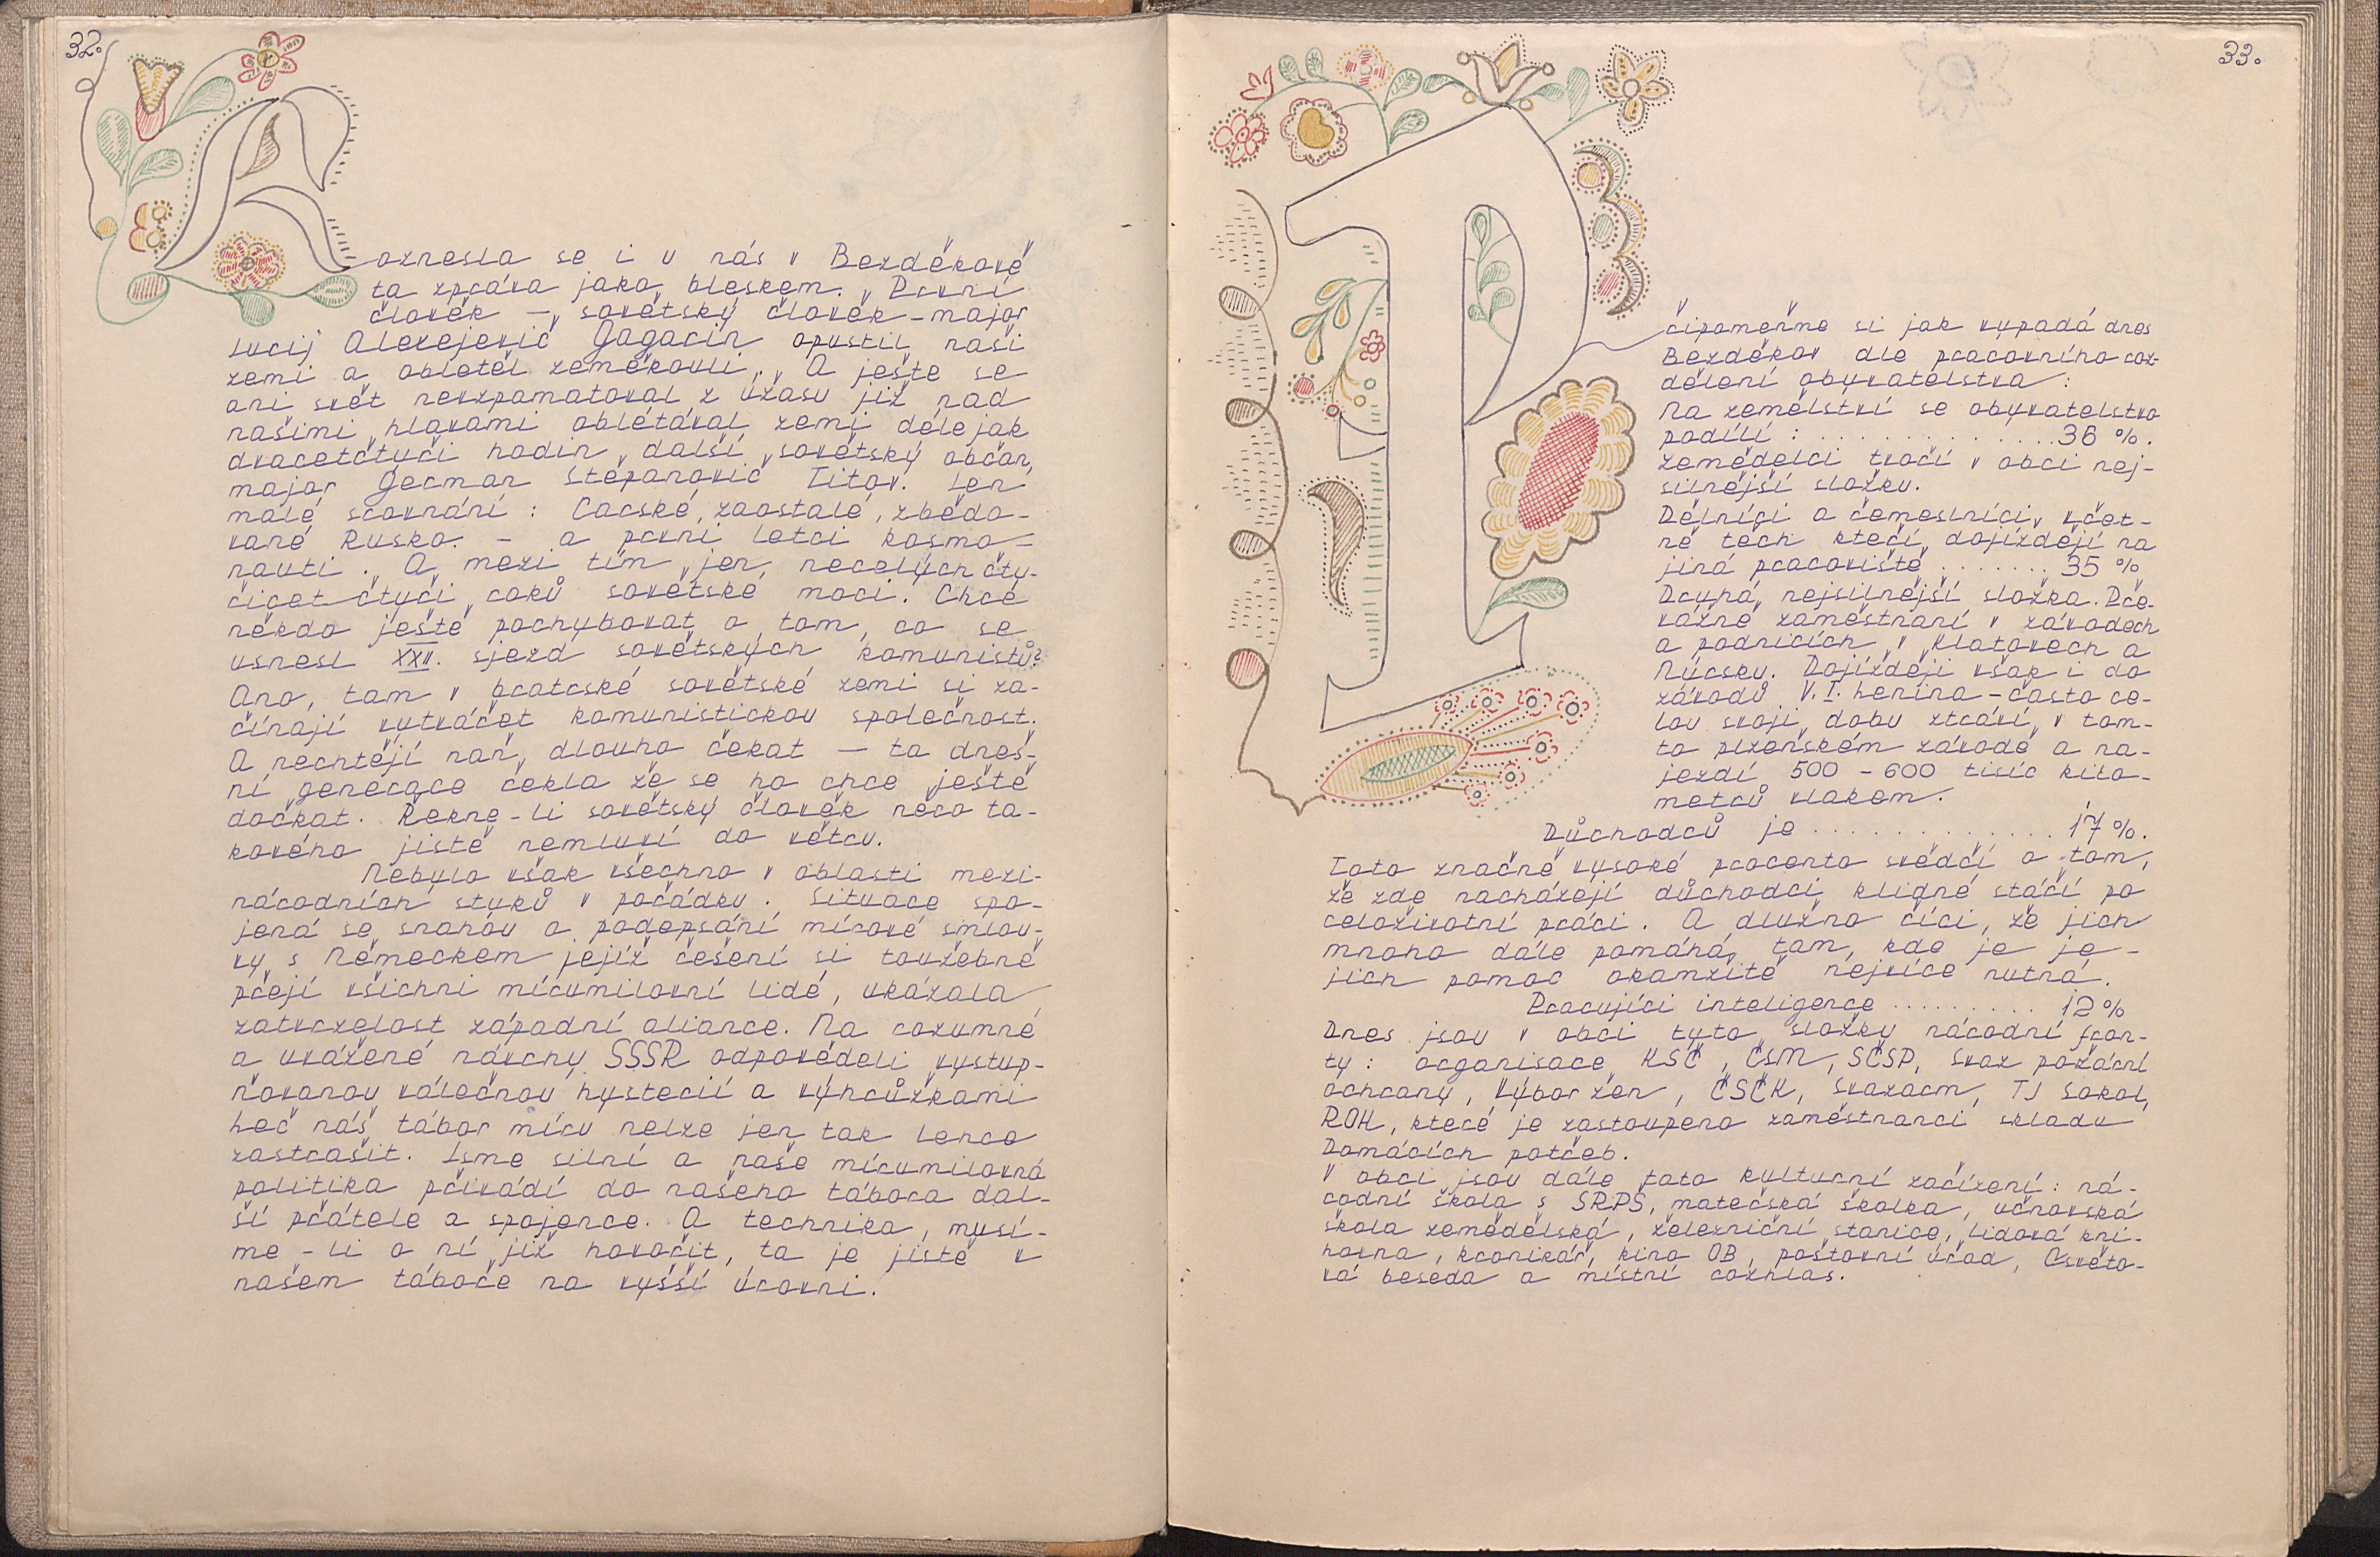 32.
Roznesla se i u nás v Bezděkově
ta zpráva jako bleskem. První
člověk – sovětský člověk – major
Jurij Alexejevič Gagarin opustil naši
zemi a obletěl zeměkouli. A ještě se
ani svět nevzpamatoval z úžasu již nad
našimi hlavami oblétával zemi déle jak
dvacetčtyři hodin další sovětský občan,
major German Stěpanovič Titov. Jen
malé srovnání : Carské, zaostalé, zbědo-
vané Rusko. – a první letci kosmo-
nauti. A mezi tím jen necelých čty-
řicet čtyři roků sovětské moci. Chce
někdo ještě pochybovat o tom, co se
usnesl XXII. sjezd sovětských komunistů?
Ano, tam v bratrské sovětské zemi si za-
čínají vytvářet komunistickou společnost.
A nechtějí naň dlouho čekat – ta dneš-
ní generace řekla že se ho chce ještě
dočkat. Řekne-li sovětský člověk něco ta-
kového jistě nemluví do větru.
Nebylo však všechno v oblasti mezi-
národních styků v pořádku. Situace spo-
jená se snahou o podepsání mírové smlou-
vy s Německem jejíž řešení si toužebně
přejí všichni mírumilovní lidé, ukázala
zatvrzelost západní aliance. Na rozumné
a uvážené návrhy SSSR odpověděli vystup-
ňovanou válečnou hysterií a výhrůžkami
Leč náš tábor míru nelze jen tak lehce
zastrašit. Jsme silní a naše mírumilovná
politika přivádí do našeho tábora dal-
ší přátele a spojence. A technika, musí-
me-li o ní již hovořit, ta je jistě v
našem táboře na vyšší úrovni.
33.
Připomeňme si jak vypadá dnes
Bezděkov dle pracovního roz-
dělení obyvatelstva :
Na zemělství se obyvatelstvo
podílí : . . . . . . . . . . . . . 36 %.
Zemědělci tvoří v obci nej-
silnější složku.
Dělníci a řemeslníci, včet-
ně těch kteří dojíždějí na
jiná pracoviště . . . . . . . 35 %
Druhá nejsilnější složka. Pře-
vážně zaměstnaní v závodech
a podnicích v Klatovech a
Nýrsku. Dojíždějí však i do
závodů V. I. Lenina – často ce-
lou svojí dobu ztráví v tom-
to plzeňském závodě a na-
jezdí 500 – 600 tisíc kilo-
metrů vlakem.
Důchodců je . . . . . . . . . . . . . 17 %.
Toto značně vysoké procento svědčí o tom,
že zde nacházejí důchodci klidné stáří po
celoživotní práci. A dlužno říci, že jich
mnoho dále pomáhá tam, kde je je-
jich pomoc okamžitě nejvíce nutná.
Pracující inteligence . . . . . . . . . 12 %
Dnes jsou v obci tyto složky národní fron-
ty : organisace KSČ, ČSM, SČSP, Svaz požární
ochrany, Výbor žen, ČSČK, Svazarm, TJ Sokol,
ROH, které je zastoupeno zaměstnanci skladu
Domácích potřeb.
V obci jsou dále tato kulturní zařízení : ná-
rodní škola s SRPŠ, mateřská školka, učňovská
škola zemědělská, železniční stanice, lidová kni-
hovna, kronikář, kino OB, poštovní úřad, Osvěto-
vá beseda a místní rozhlas.